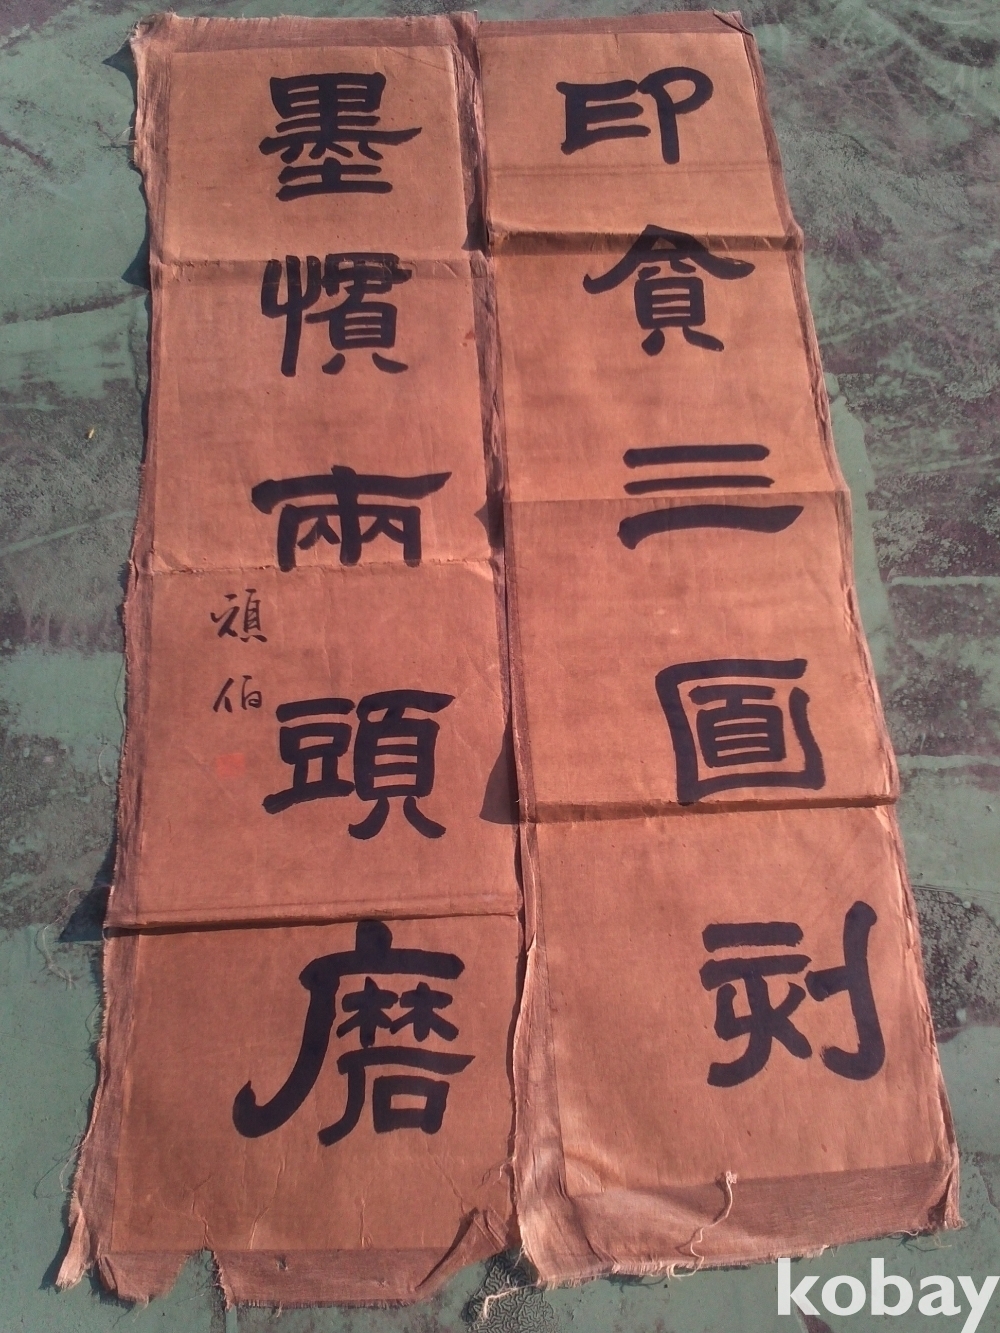 印貪三面刻
墨慣兩頭磨
頑伯
kobay